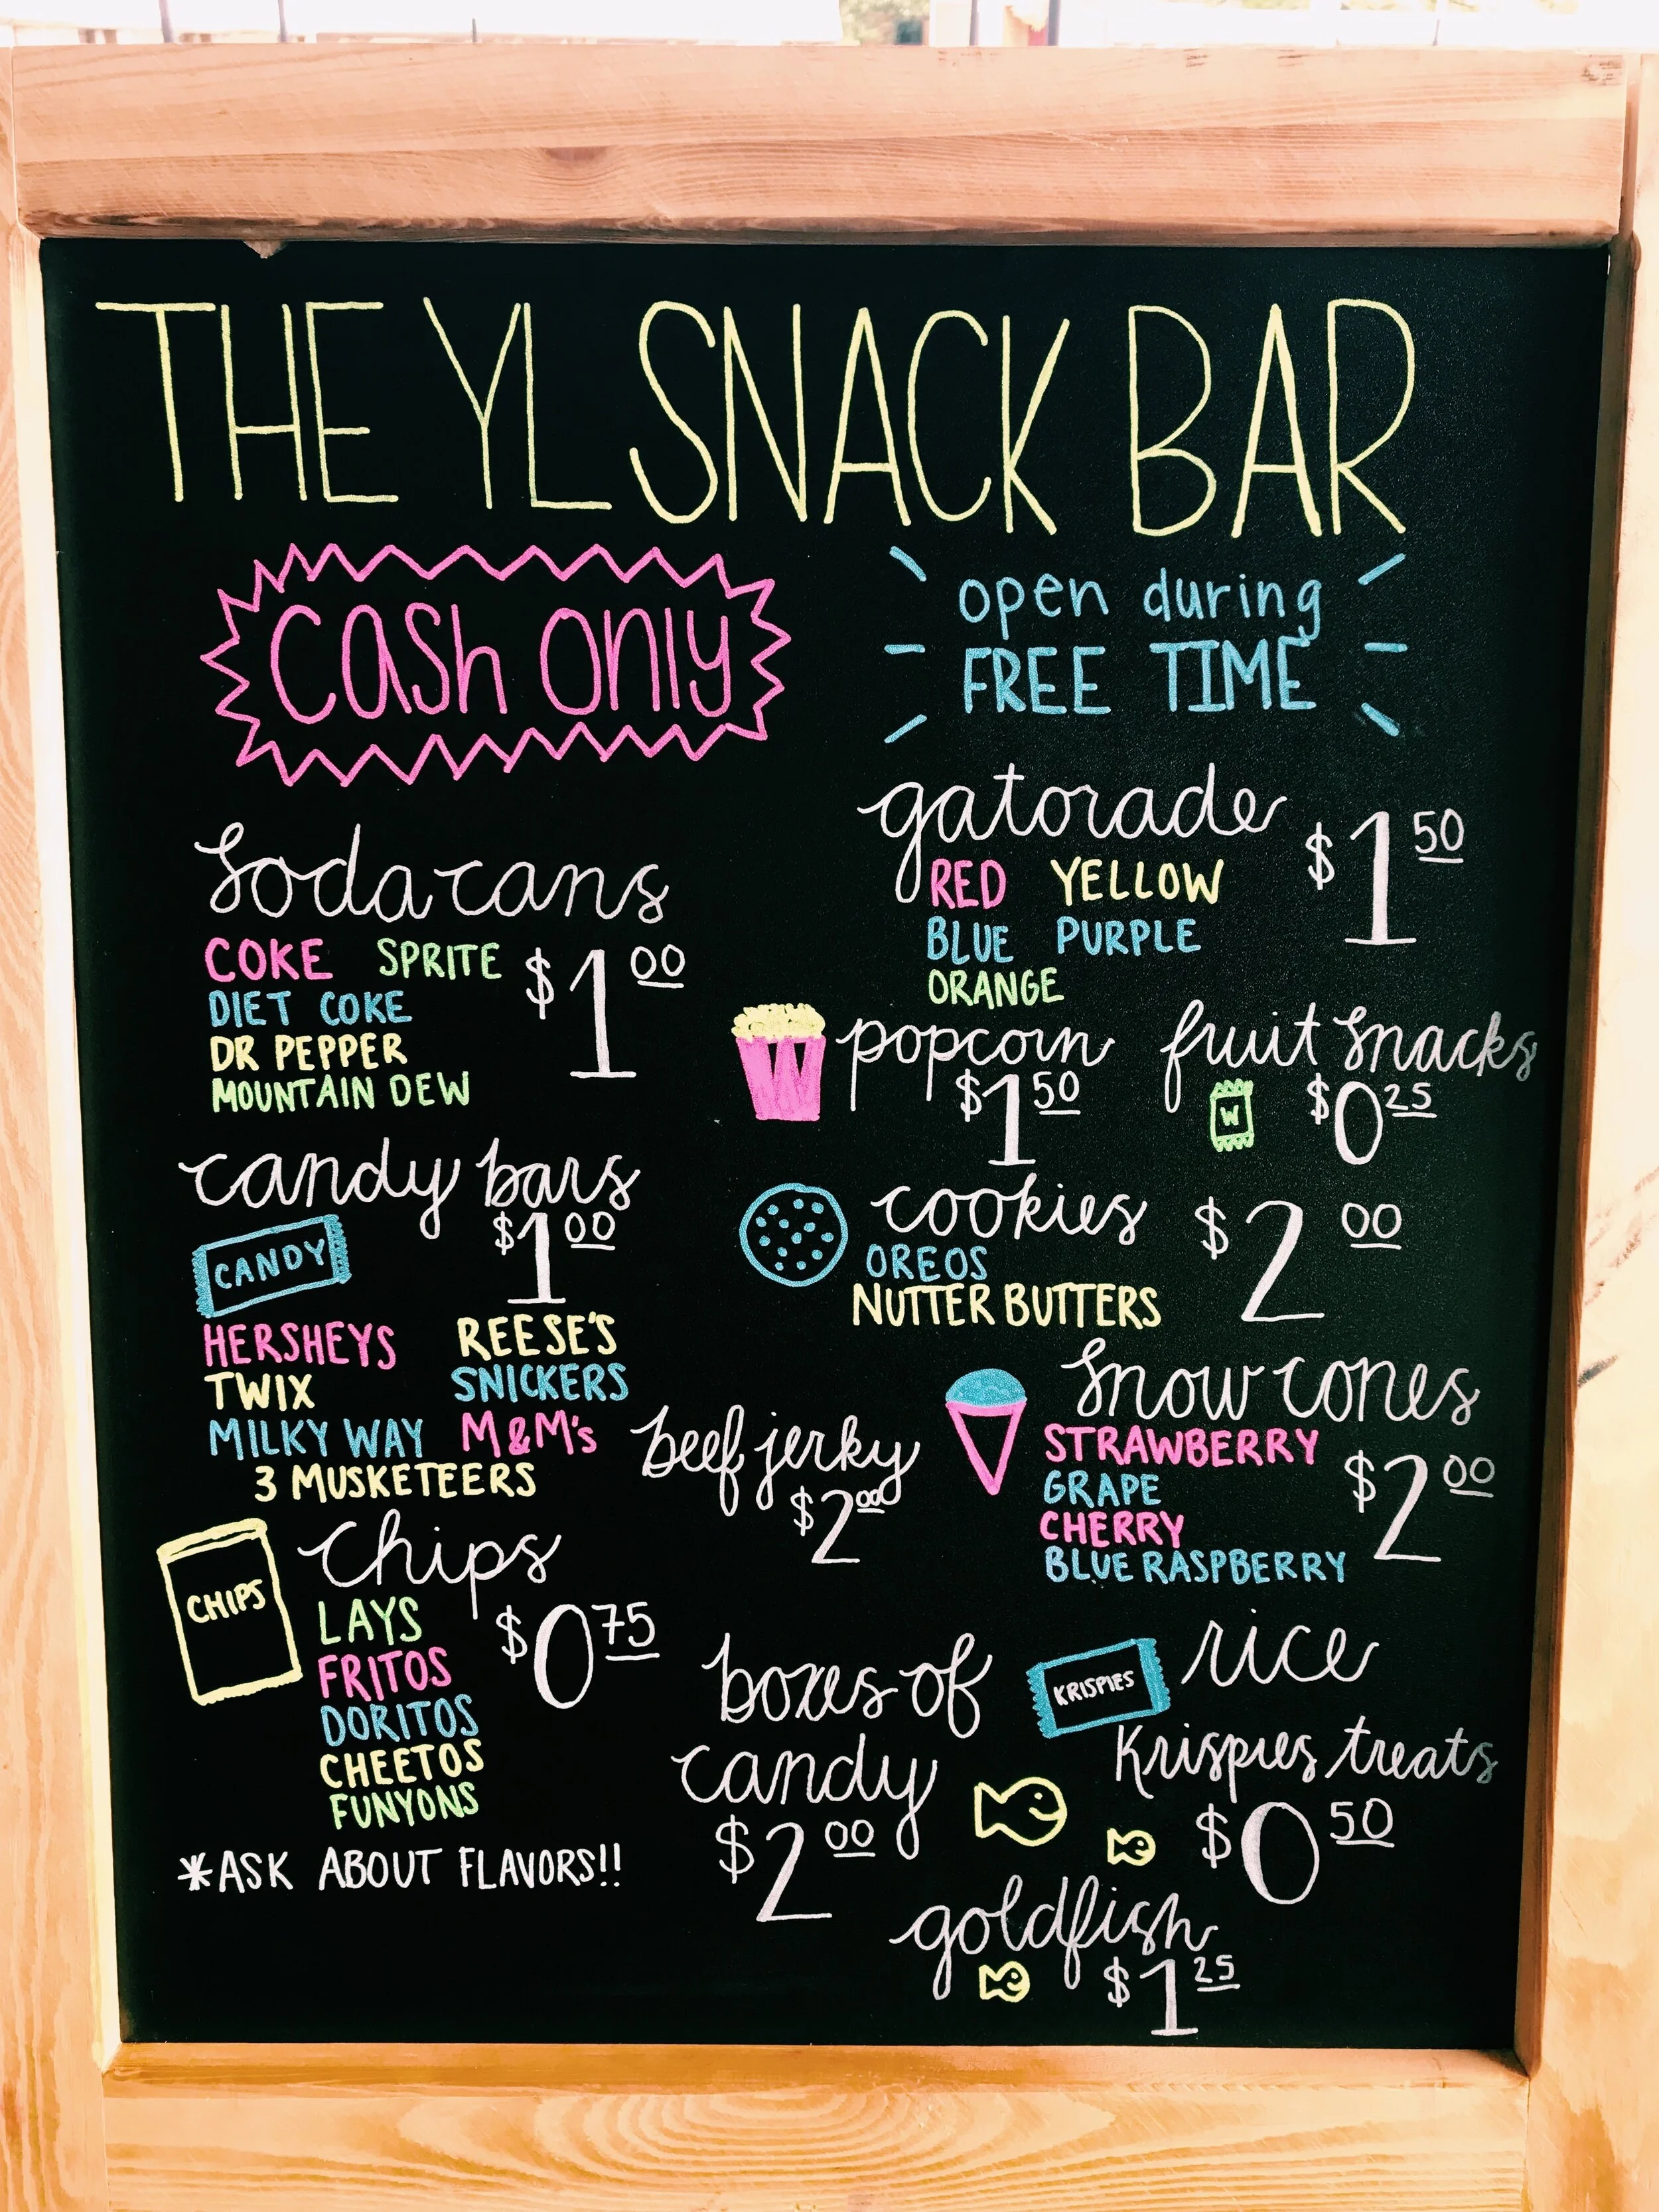 THE YL SNACK BAR
cash only
open during
FREE TIME
soda cans
COKE SPRITE
DIET COKE
DR PEPPER
MOUNTAIN DEW
$1.00
gatorade
$1.50
RED YELLOW
BLUE PURPLE
ORANGE
popcorn
$1.50
fruit snacks
W
$0.25
candy bars
$1.00
CANDY
HERSHEYS REESE'S
TWIX SNICKERS
MILKY WAY M&M's
3 MUSKETEERS
cookies
$2.00
OREOS
NUTTER BUTTERS
beef jerky
$2.00
snow cones
STRAWBERRY
GRAPE
CHERRY
BLUE RASPBERRY
$2.00
CHIPS
chips
$0.75
LAYS
FRITOS
DORITOS
CHEETOS
FUNYONS
*ASK ABOUT FLAVORS!!
boxes of
candy
$2.00
KRISPIES
rice
Krispies treats
$0.50
goldfish
$1.25